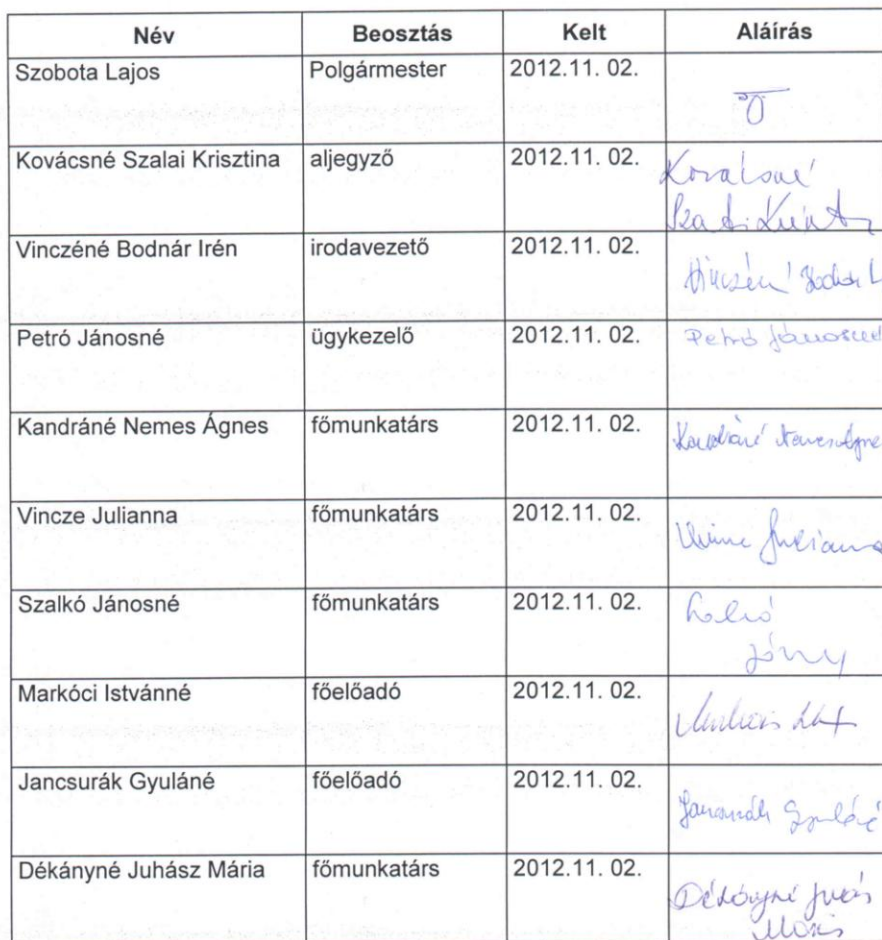 Név Beosztás Kelt Aláírás
Szobota Lajos Polgármester 2012.11. 02.
Kovácsné Szalai Krisztina aljegyző 2012.11. 02. Kovácsné
Vinczéné Bodnár Irén irodavezető 2012.11. 02. Vinczéné Bodnár I
Petró Jánosné ügykezelő 2012.11. 02. Petró Jánosné
Kandráné Nemes Ágnes főmunkatárs 2012.11. 02. Kandráné Nemes Ágnes
Vincze Julianna főmunkatárs 2012.11. 02. Vincze Julianna
Szalkó Jánosné főmunkatárs 2012.11. 02. Szalkó
Markóci Istvánné főelőadó 2012.11. 02.
Jancsurák Gyuláné főelőadó 2012.11. 02. Jancsurák Gyuláné
Dékányné Juhász Mária főmunkatárs 2012.11. 02. Dékányné Juhász
Mária